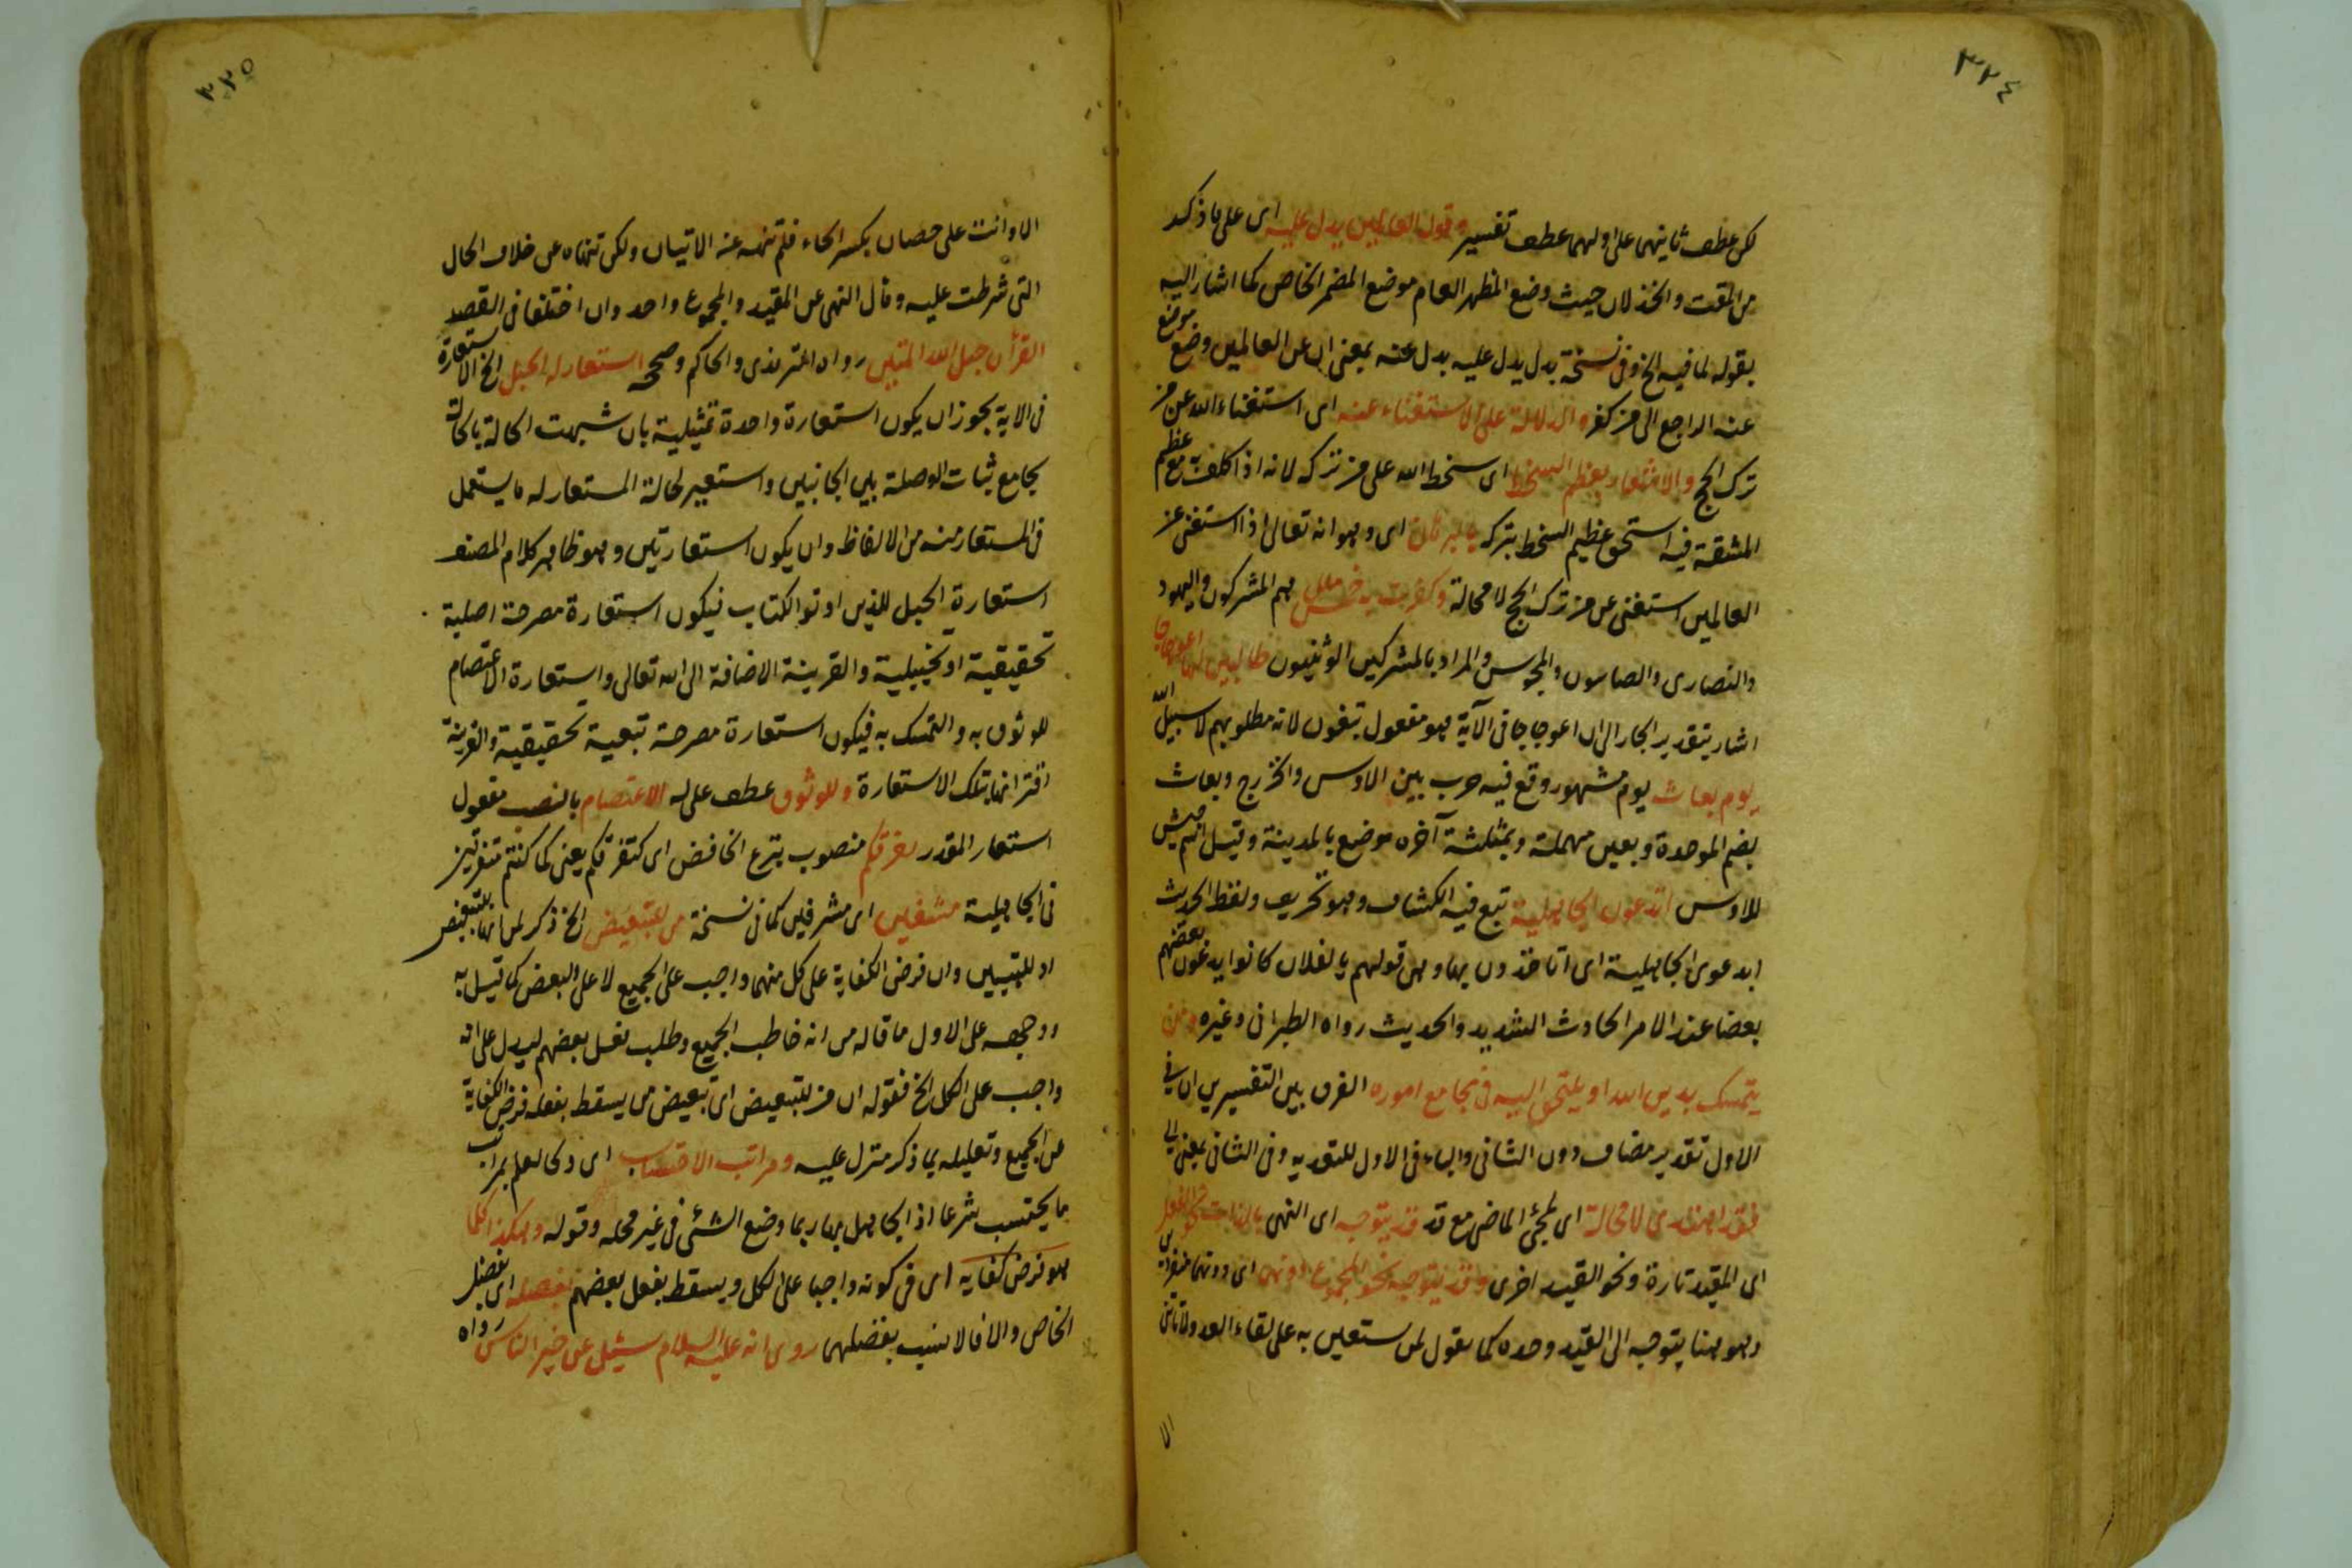 ٣٢٤
لكن عطف ثانيهما على اولهما عطف تفسير وقول العالمين يدل عليه اى على ما ذكر
من المقت والخذلان حيث وضع المظهر العام موضع المضمر الخاص كما اشار اليه
بقوله لما فيه الخ وفى نسخة بدل يدل عليه بدل عنه بمعنى ان عن العالمين وضع موضع
عنه الراجع الى من كفر والدلالة على الاستغناء عنه اى استغناء الله عن من
ترك الحج والاشعار بعظم السخط اى سخط الله على من تركه لانه اذا كلف به مع عظم
المشقة فيه استحق عظيم السخط بتركه بالبرهان اى وهو انه تعالى اذا استغنى عن
العالمين استغنى عن من ترك الحج لا محالة وكفرت به خمس ملل هم المشركون واليهود
والنصارى والصابئون والمجوس والمراد بالمشركين الوثنيون طالبين لها اعوجاجا
اشار بتقدير الجار الى ان اعوجاجا فى الآية هو مفعول تبغون لانه مطلوبهم لا سبيل الله
يوم بعاث يوم مشهور وقع فيه حرب بين الاوس والخزرج وبعاث
بضم الموحدة وبعين مهملة وبمثلثة آخره موضع بالمدينة وقيل اسم حصن
للاوس اتدعون الجاهلية تبع فيه الكشاف وهو تحريف ولفظ الحديث
ابدعوى الجاهلية اى اتاخذون بها وهى قولهم يا لفلان كانوا يدعون بعضهم
بعضا عند الامر الحادث الشديد والحديث رواه الطبرانى وغيره ومن
يتمسك بدين الله او يلتجئ اليه فى مجامع اموره الفرق بين التفسيرين ان فى
الاول تقدير مضاف دون الثانى والباء فى الاول للتعدية وفى الثانى بمعنى الى
فقد اهتدى لا محالة اى لمجئ الماضى مع قد قد يتوجه اى النهى بالذات نحو الفعل
اى المقيد تارة ونحو القيد اخرى وقد يتوجه نحو المجموع دونهما اى دونهما منفردين
وهو هنا يتوجه الى القيد وحده كما تقول لمن ستعين به على لقاء العدو لا تاتنى
الا
٣٢٥
الا وانت على حصان بكسر الحاء فلم تنهه عنه الاتيان ولكن تنهاه عن خلاف الحال
التى شرطت عليه وقال النهى عن المقيد والمجموع واحد وان اختلفا فى القصد
القرآن حبل الله المتين رواه الترمذى والحاكم وصححه استعار له الحبل الخ الاستعارة
فى الآية يجوز ان يكون استعارة واحدة تمثيلية بان شبهت الحالة بالحالة
بجامع ثبات الوصلة بين الجانبين واستعير لحالة المستعار له ما يستعمل
فى المستعار منه من الالفاظ وان يكون استعارتين وهو ظاهر كلام المصنف
استعارة الحبل للذين اوتوا الكتاب فيكون استعارة مصرحة اصلية
تحقيقية او تخييلية والقرينة الاضافة الى الله تعالى واستعارة الاعتصام
للوثوق به والتمسك به فيكون استعارة مصرحة تبعية تحقيقية والقرينة
اقترانها بتلك الاستعارة وللوثوق عطف على له الاعتصام بالنصب مفعول
استعار المقدر تفرقكم منصوب بنزع الخافض اى كتفرقكم يعنى كما كنتم متفرقين
فى الجاهلية مشفين اى مشرفين كما فى نسخة من للتبعيض الخ ذكر لمن انها للتبعيض
او للتبيين وان فرض الكفاية على كل منهما واجب على الجميع لا على البعض كما قيل به
ووجهه على الاول ما قاله من انه خاطب الجميع وطلب فعل بعضهم ليدل على انه
واجب على الكل الخ فقوله ان من للتبعيض اى تبعيض من يسقط بفعله فرض الكفاية
عن الجميع وتعليله بما ذكر منزل عليه ومراتب الاحتساب اى وكالعلم بمراتب
ما يحتسب شرعا اذ الجاهل بها ربما وضع الشئ فى غير محله وقوله وهكذا كلما
هو فرض كفاية اى فى كونه واجبا على الكل ويسقط بفعل بعضهم بفضله اى بفضل
الخاص والا فالانسب بفضلهم روى انه عليه السلام سئل عن خير الناس رواه